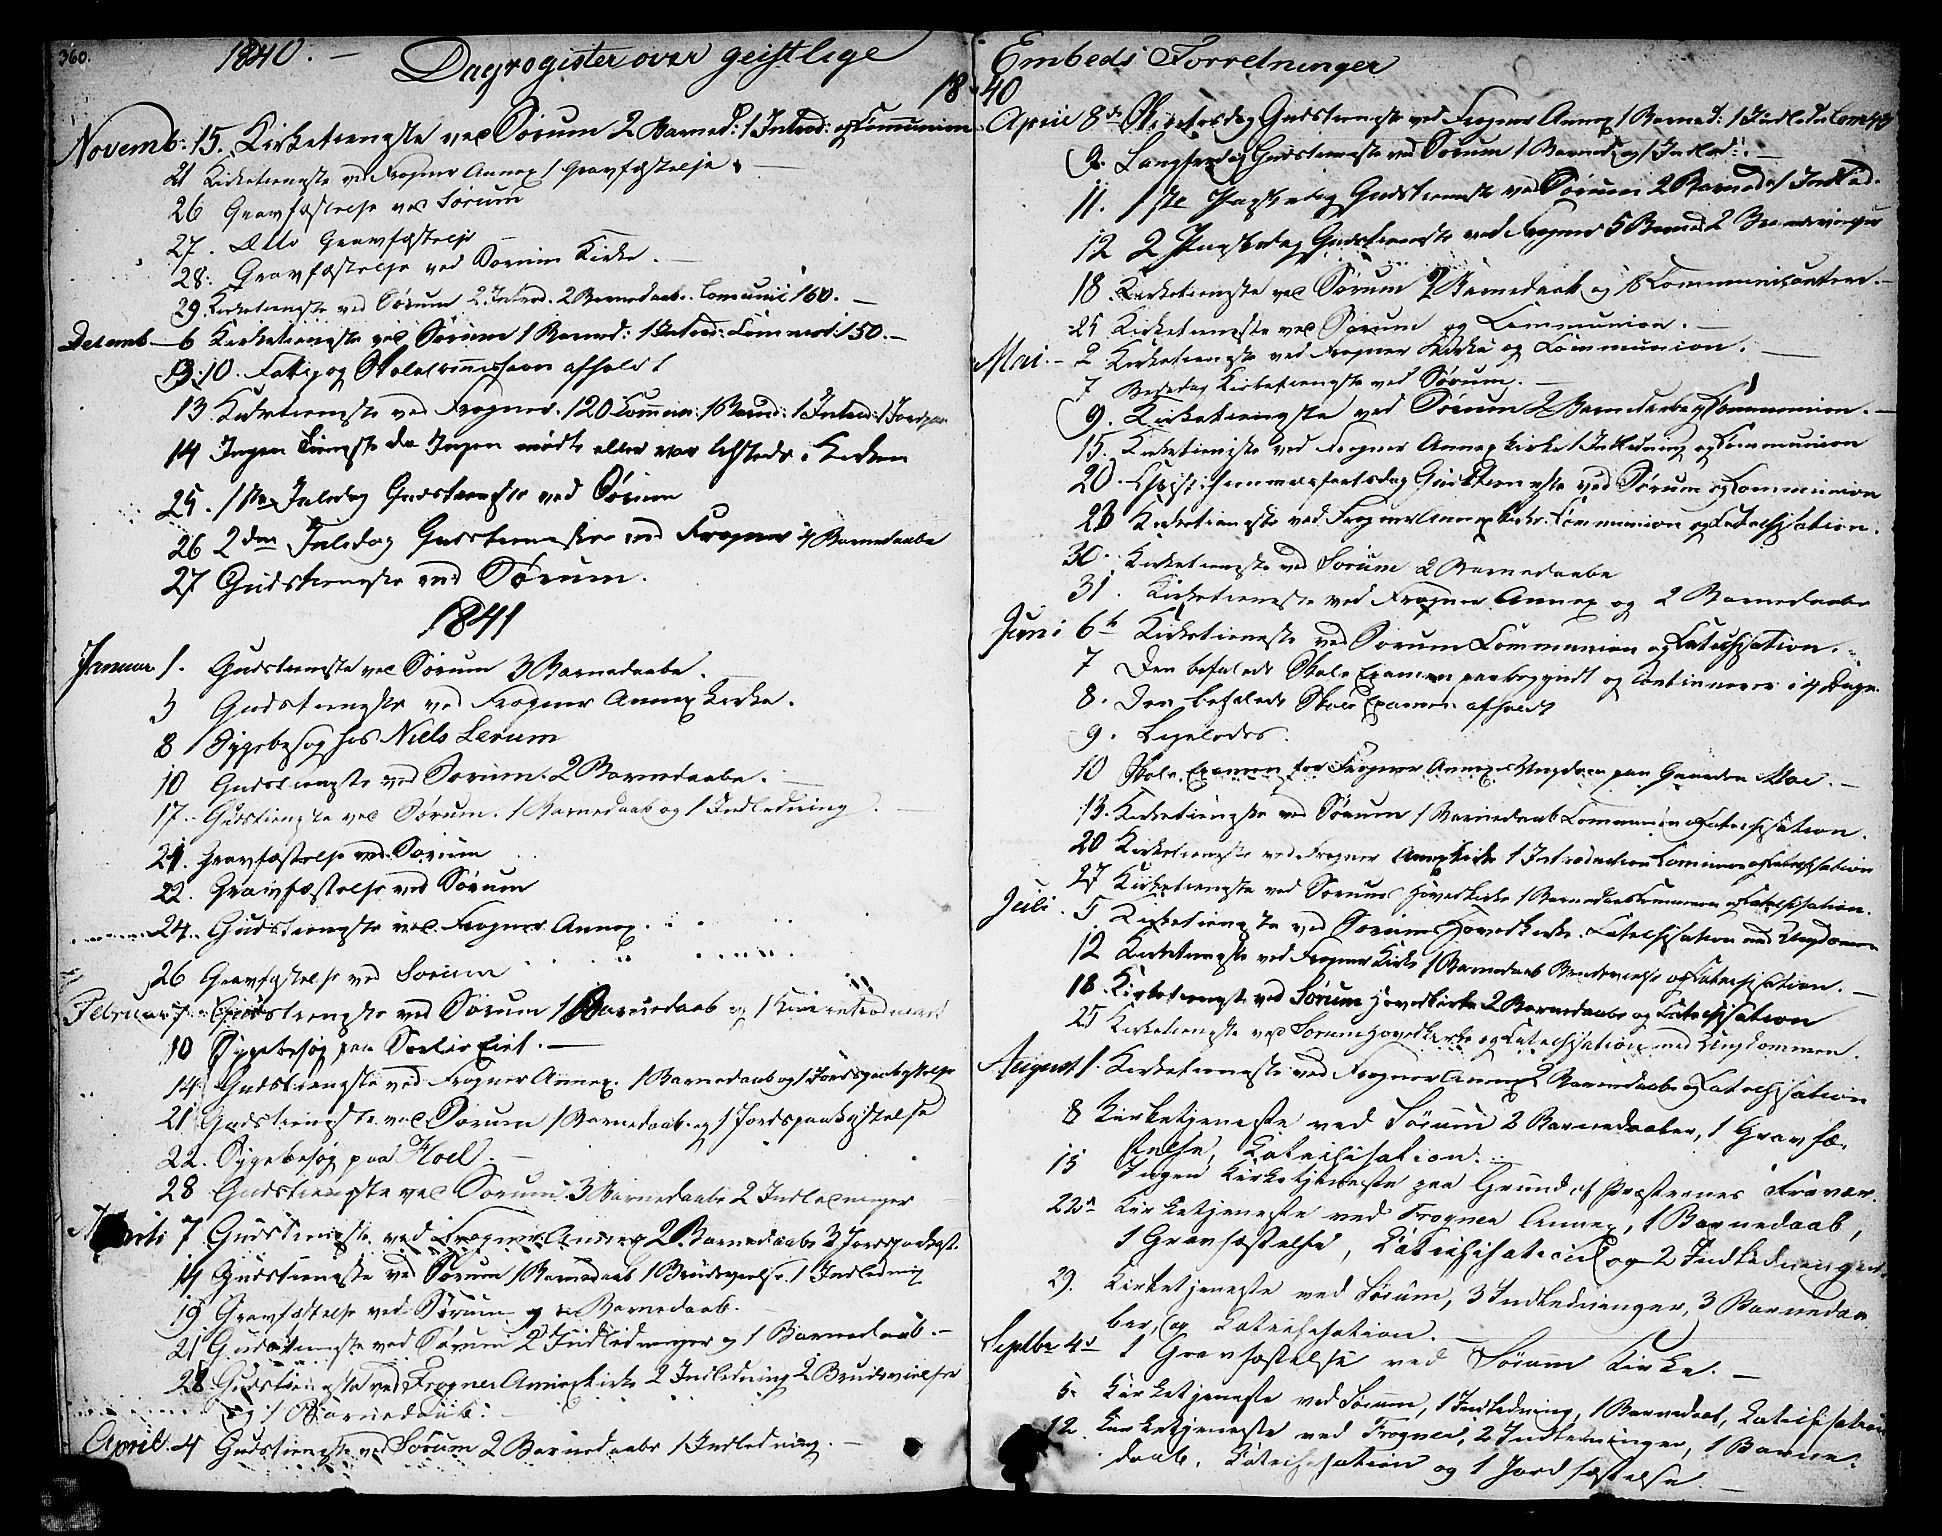 360.
1840. — Dagregister over geistlige
18
Novemb: 15. Kirketieneste ved Sørum 2 Barned: 1 Introd: og Communion
21 Kirketieneste ved Frogner Annex 1 Gravfæstelse
26 Gravfæstelse ved Sørum
27. Ditto Gravfæstelse
28. Gravfæstelse ved Sørum Kirke. —
29. Kirketieneste ved Sørum 2 Introd. 2 Barnedaab. Comunic 160. —
Decemb — 6 Kirketieneste ved Sørum 1 Barned: 1 Introd: 150. —
10. Fattig og Skolecommission afholdt
13 Kirketieneste ved Frogner. 120 Commun: 1 Barnd: 1 Introd:
14 Ingen Tieneste da Ingen mødte eller var tilstede i Kirken
25. 1ste Juledag Gudstieneste ved Sørum
26 2den Juledag Gudstieneste ved Frogner 4 Barnedaabe
27 Gudstieneste ved Sørum.
1841
Januar 1. Gudstieneste ved Sørum 3 Barnedaabe.
3 Gudstieneste ved Frogner Annex Kirke.
8 Sygebesøg hos Niels Lerum
10 Gudstieneste ved Sørum. 2 Barnedaabe. —
17. Gudstieneste ved Sørum. 1 Barnedaab og 1 Indledning. —
21. Gravfæstelse ved Sørum
22. Gravfæstelse ved Sørum
24. Gudstieneste ved Frogner Annex.
26 Gravfæstelse ved Sørum
Februar 7 Gudstieneste ved Sørum 1 Barnedaab og 1
10 Sygebesøg paa
14 Gudstieneste ved Frogner Annex. 1 Barnedaab og 1 Jordspaakastelse
21 Gudstieneste ved Sørum 1 Barnedaab og 1 Jordspaakastelse
22. Sygebesøg paa Hoel. —
28 Gudstieneste ved Sørum 3 Barnedaabe 2 Indledninger
7 Gudstieneste ved Frogner Annex 2 Barnedaabe 3
14 Gudstieneste ved Sørum 1 Barnedaab 1 Brudevielse 1 Indledning
19 Gravfæstelse ved Sørum og Barnedaab.
21 Gudstieneste ved Sørum 2 Indledninger og 1 Barnedaab. —
28 Gudstieneste ved Frogner Annexkirke 2 Indledning 2 Brudevielser
og 1 Barnedaab.
April. 4 Gudstieneste ved Sørum 2 Barnedaabe 1 Indledning. —
Embeds Forretninger
40
April 8de Gudstieneste ved Frogner Annex 1 Barned: 1 Indledn
9. Langfredag Gudstieneste ved Sørum 1 Barned og 1 Indled: —
11. 1ste Paaskedag Gudstieneste ved Sørum 2 Barned 1 Indled.
12 2 Paaskedag Gudstieneste ved Frogner 5 Barned 2 Brudevielser
18. Kirketieneste ved Sørum 2 Barnedaab og Communicanter. —
25 Kirketieneste ved Sørum og Communion. —
Mai. — 2 Kirketieneste ved Frogner Kirke og Communion. —
7 Bededag Kirketieneste ved Sørum. —
9. Kirketieneste ved Sørum 2 Barnedaab og Communion. —
15. Kirketieneste ved Frogner Annex Kirke 1 Indledning og Communion
20. Christi Himmelfartsdag Gudstieneste ved Sørum og Communion
23 Kirketieneste ved Frogner Annex Kirke. Communion og Catechisation.
30. Kirketieneste ved Sørum 2 Barnedaabe
31. Kirketieneste ved Frogner Annex og 2 Barnedaabe
Juni 6te Kirketieneste ved Sørum Communion og Catechisation.
7 Den befalede Skole Examen paabegyndt og Continuerer i 4 Dage.
8. Den befalede Skole Examen afholdt
9. Ligeledes.
10 Skole Examen for Frogner Annexes Ungdom paa Gaarden Moe. —
13. Kirketieneste ved Sørum 1 Barnedaab Communion Catechisation.
20 Kirketieneste ved Frogner Annexkirke 1 Introduction Communion og Catechisation
27 Kirketieneste ved Sørums Hovedkirke 1 Barnedaab Communion og Catechisation.
Juli. 5 Kirketieneste ved Sørums Hovedkirke. Catechisation med Ungdommen
12 Kirketieneste ved Frogner Kirke 1 Barnedaab Brudevielse og Catechisation. —
18. Kirketieneste ved Sørum Hovedkirke 2 Barnedaabe og Catechisation
25 Kirketieneste ved Sørum Hovedkirke og Catechisation med Ungdommen.
August 1. Kirketieneste ved Frogner Annex 2 Barnedaabe og Catechisation
8 Kirketjeneste ved Sørum 2 Barnedaaber, 1 Gravfæ-
stelse, Catechisation.
15 Ingen Kirketjeneste paa Grund af Præsternes Fravær.
22de Kirketjeneste ved Frogner Annex, 1 Barnedaab,
1 Gravfæstelse, Catechisation og 2 Indledninger.
29. Kirketjeneste ved Sørum, 3 Indledninger, 3 Barnedaa-
ber, og Catechisation. —
Septbr 4de 1 Gravfæstelse ved Sørum Kirke. —
5. Kirketjeneste ved Sørum, 1 Indledning, 1 Barnedaab, Catechisation
12. Kirketjeneste ved Frogner, 2 Indledninger, 1 Barne-
daab, Catechisation og 1 Jordfæstelse. —